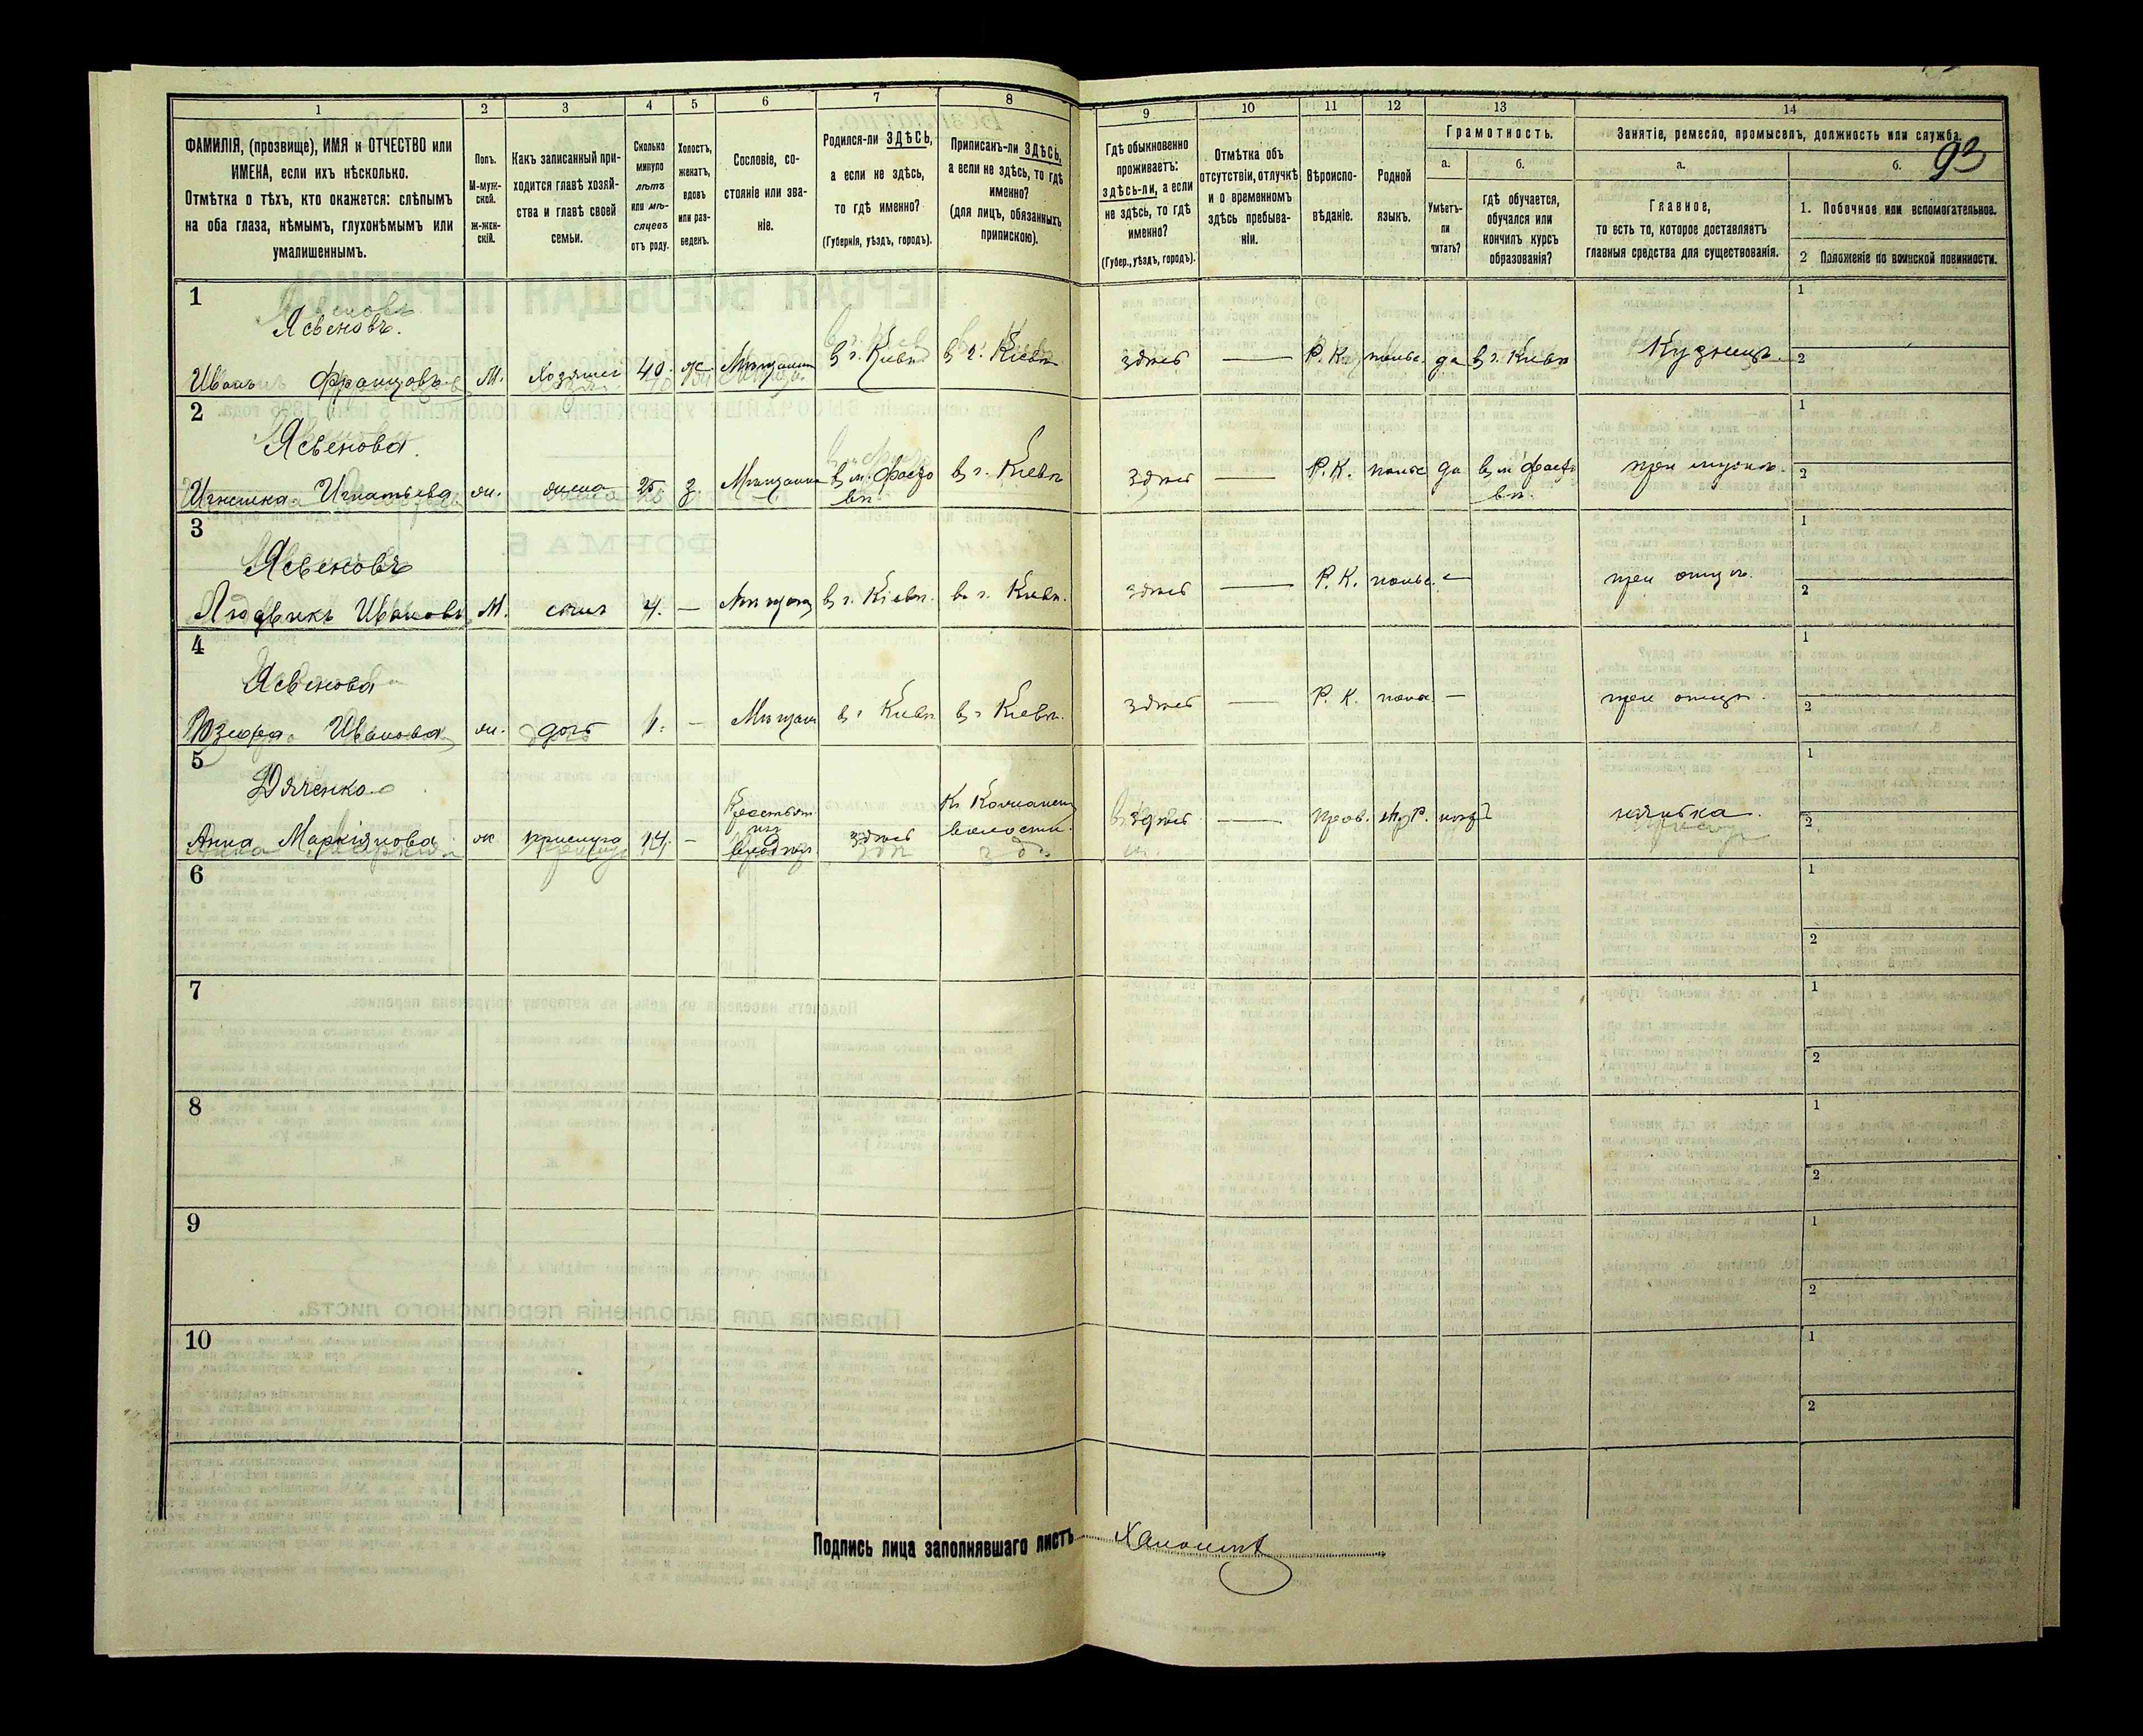 1 2 3 4 5 6 7 8 9 10 11 12 13 14
93
ФАМИЛІЯ, (прозвище), ИМЯ и ОТЧЕСТВО или
ИМЕНА, если ихъ нѣсколько.
Отмѣтка о тѣхъ, кто окажется: слѣпымъ
на оба глаза, нѣмымъ, глухонѣмымъ или
умалишеннымъ.
Полъ.
М-муж-
ской.
ж-жен-
скій.
Какъ записанный при-
ходится главѣ хозяй-
ства и главѣ своей
семьи.
Сколько
минуло
лѣтъ
или мѣ-
сяцевъ
отъ роду.
Холостъ,
женатъ,
вдовъ
или раз-
веденъ.
Сословіе, со-
стояніе или зва-
ніе.
Родился-ли ЗДѢСЬ,
а если не здѣсь,
то гдѣ именно?
(Губернія, уѣздъ, городъ).
Приписанъ-ли ЗДѢСЬ,
а если не здѣсь, то гдѣ
именно?
(для лицъ, обязанныхъ
припискою).
Гдѣ обыкновенно
проживаетъ:
здѣсь-ли, а если
не здѣсь, то гдѣ
именно?
(Губер., уѣздъ, городъ).
Отмѣтка объ
отсутствіи, отлучкѣ
и о временномъ
здѣсь пребыва-
ніи.
Вѣроиспо-
вѣданіе.
Родной
языкъ.
Грамотность.
а.
Умѣетъ-
ли
читать?
б.
Гдѣ обучается,
обучался или
кончилъ курсъ
образованія?
Занятіе, ремесло, промыселъ, должность или служба.
а.
Главное,
то есть то, которое доставляетъ
главныя средства для существованія.
б.
1. Побочное или вспомогательное.
2 Положеніе по воинской повинности.
1
Ясвеновъ.
Иванъ Францовъ М. Хозяинъ 40. ж Мѣщанинъ В г. Кіевѣ В г. Кіевѣ здѣсь — Р. К. польс. да В г. Кіевѣ Кузнецъ. 1 2
2
Ясвенова.
Игнатьева ж. жена 25 з. Мѣщанка В м. Фасто В г. Кіевѣ здѣсь — Р. К. польс да В м Фасто при мужѣ. 1 2
вѣ. вѣ.
3
Ясвеновъ
Людвикъ Ивановъ М. сынъ 4. — В г. Кіевѣ. В г. Кіевѣ. здѣсь — Р. К. польс. — при отцѣ. 1 2
4
Ясвенова
Юзефа Иванова ж. дочь 1. — В г Кіевѣ В г Кіевѣ. здѣсь — Р. К. поль. — при отцѣ. 1 2
5
Дяченко
Анна Маркіянова ж прислуга 14. — здѣсь волости. здѣсь — прав. нѣтъ нянька. 1 2
6 1 2
7 1 2
8 1 2
9 1 2
10 1 2
Подпись лица заполнявшаго листъ